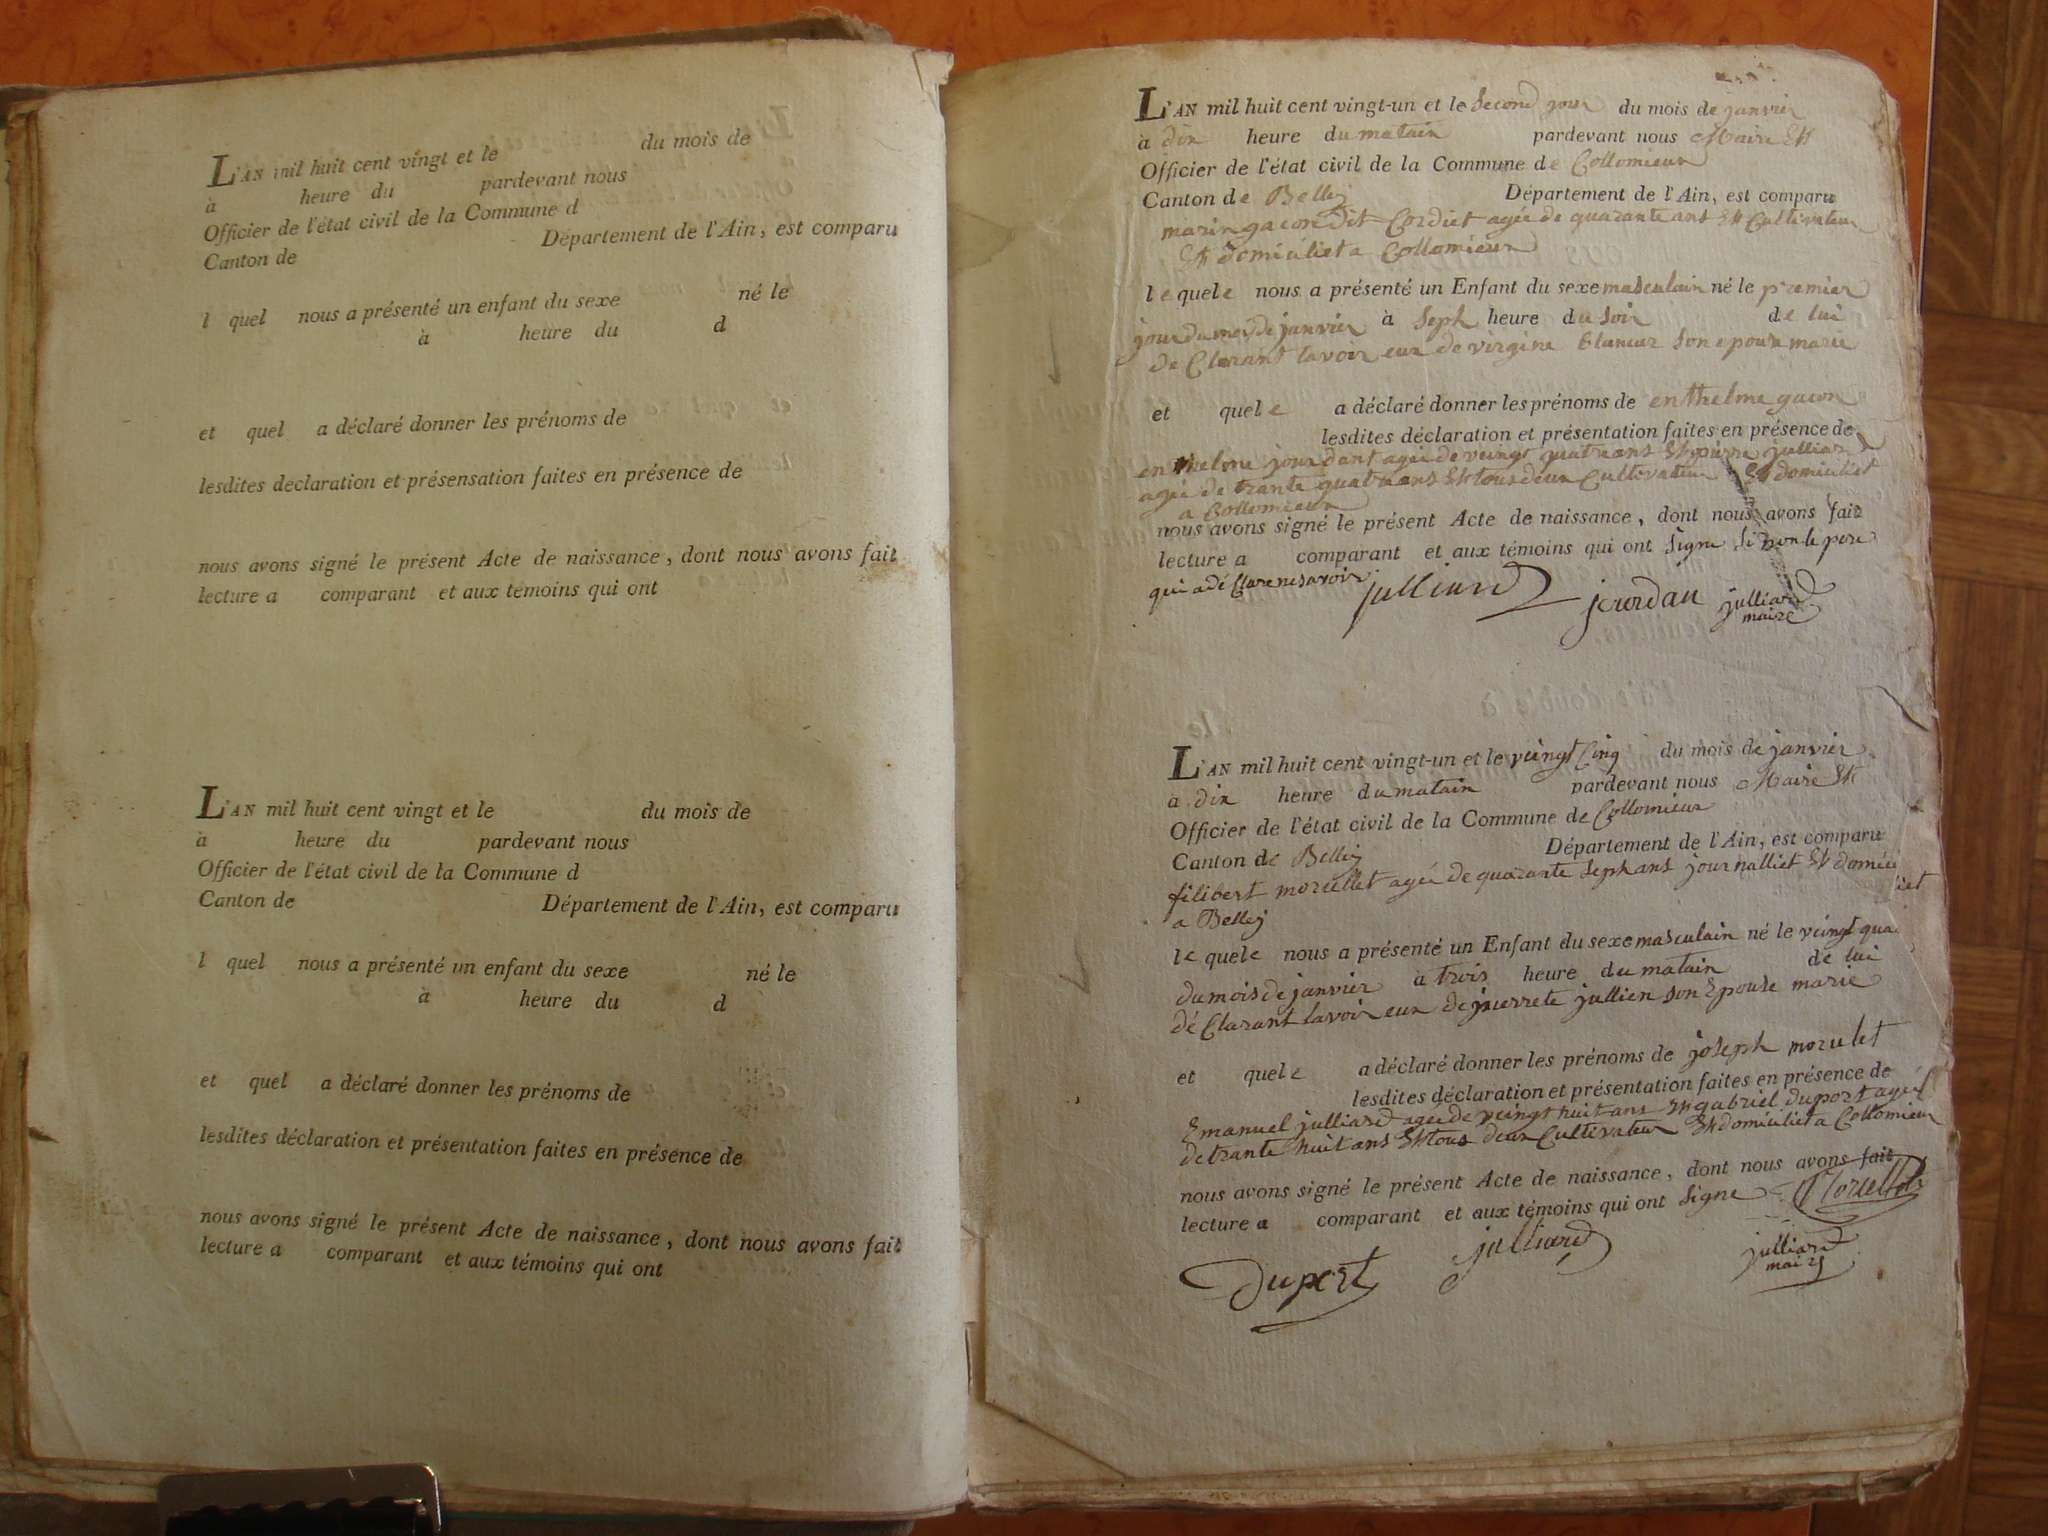 L'AN mil huit cent vingt et le du mois de
à heure du pardevant nous
Officier de l'état civil de la Commune d
Canton de Département de l'Ain, est comparu
l quel nous a présenté un enfant du sexe né le
à heure du d
et quel a déclaré donner les prénoms de
lesdites declaration et présensation faites en présence de
nous avons signé le présent Acte de naissance, dont nous avons fait
lecture a comparant et aux temoins qui ont
L'AN mil huit cent vingt et le du mois de
à heure du pardevant nous
Officier de l'état civil de la Commune d
Canton de Département de l'Ain, est comparu
l quel nous a présenté un enfant du sexe né le
à heure du d
et quel a déclaré donner les prénoms de
lesdites déclaration et présentation faites en présence de
nous avons signé le présent Acte de naissance, dont nous avons fait
lecture a comparant et aux témoins qui ont
L'AN mil huit cent vingt-un et le Second jour du mois de janvier
à dix heure du matain pardevant nous Maire Et
Officier de l'état civil de la Commune de Collomieux
Canton de Belley Département de l'Ain, est comparu
marin gacon dit Cordiet agée de quarante ans Et Cultivateur
Et domiciliet a Collomieux
le quele nous a présenté un Enfant du sexe masculain né le premier
jour du moi de janvier à Seph heure du Soir de lui
de Clarant lavoir eux de virgine blancar Son epouse marie
et quele a déclaré donner les prénoms de enthelme gacon
lesdites déclaration et présentation faites en présence de
enthelme jourdant agée de veingt quatra ans Et pierre julliard
agée de trante quatra ans Et tous deux Cultivateur Et domiciliet
a Collomieux
nous avons signé le présent Acte de naissance, dont nous avons fait
lecture a comparant et aux témoins qui ont Signe Si non le pere
qui a dé Clare ne savoir julliard jourdan julliard
maire
L'AN mil huit cent vingt-un et le veingt Cinq du mois de janvier
a dix heure du matain pardevant nous Maire Et
Officier de l'état civil de la Commune de Collomieux
Canton de Belley Département de l'Ain, est comparu
filibert morellet agée de quarante Seph ans journalliet Et domici
liet
a Belley
le quele nous a présenté un Enfant du sexe masculain né le veingt qua
du mois de janvier à trois heure du matain de lui
dé Clarant lavoir eux de pierrete jullien son Epouse marie
et quele a déclaré donner les prénoms de joseph morulet
lesdites déclaration et présentation faites en présence de
Emanuel julliard agée de veingt huit ans Et gabriel duport agée
de trante huit ans Et tous deux Cultivateur Et domiciliet a Collomieux
nous avons signé le présent Acte de naissance, dont nous avons fait
lecture a comparant et aux témoins qui ont Signe Morellet
duport julliard julliard
maire